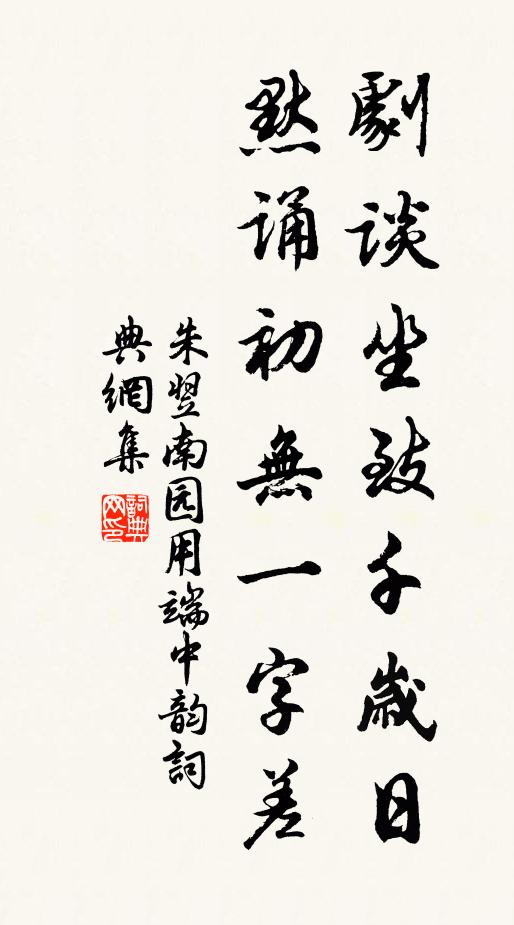 劇谈坐致千歲日
黙诵初無一字差
朱翌南园用端中韵詞
典網集
詞典网印